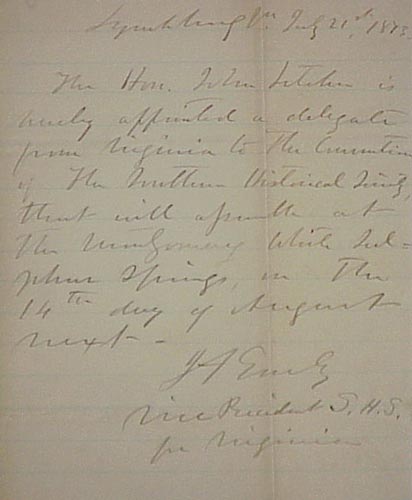 Lynchburg Va. July 21st, 1873
The Hon. John Letcher is
hereby appointed a delegate
from Virginia to the Convention
of the Southern Historical Society,
that will assemble at
the Montgomery White Sul=
phur Springs, on the
14th day of August
next -
J A Early
Vice President S. H. S.
for Virginia